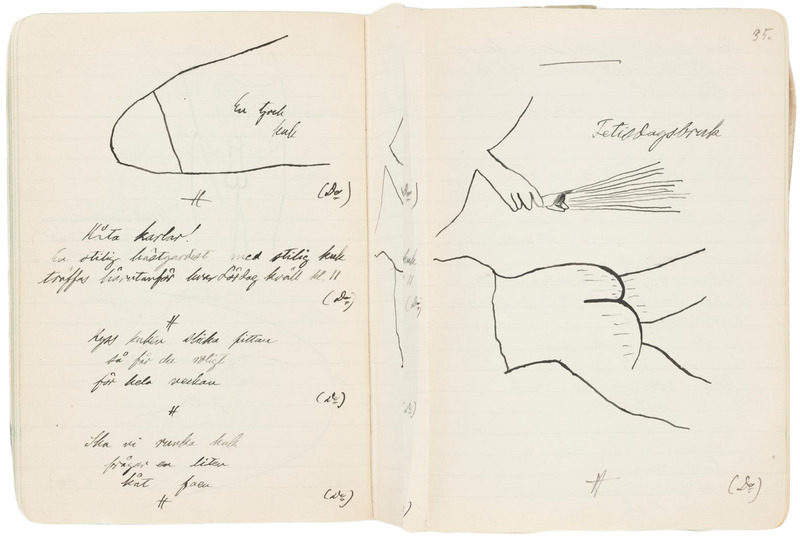 En tjock
kuk
(Do)
H
Kåta karlar!
En stilig hästgardist med stilig kuk
träffas härutanför hvar Lördag kväll kl 11
(Do)
H
kuken slicka fittan
så får du roligt
för hela veckan
(Do)
H
Ska vi runka kuk
frågar en liten
kåt faen
H
(Do)
35.
Fetisdagsbruk
H
(Do)